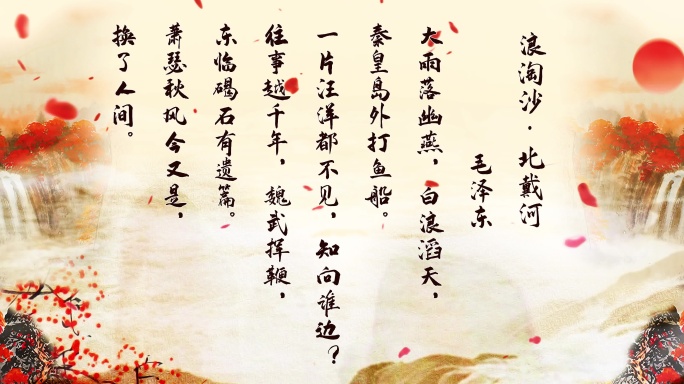 浪淘沙·北戴河
毛泽东
大雨落幽燕，白浪滔天，
秦皇岛外打鱼船。
一片汪洋都不见，知向谁边？
往事越千年，魏武挥鞭，
东临碣石有遗篇。
萧瑟秋风今又是，
换了人间。